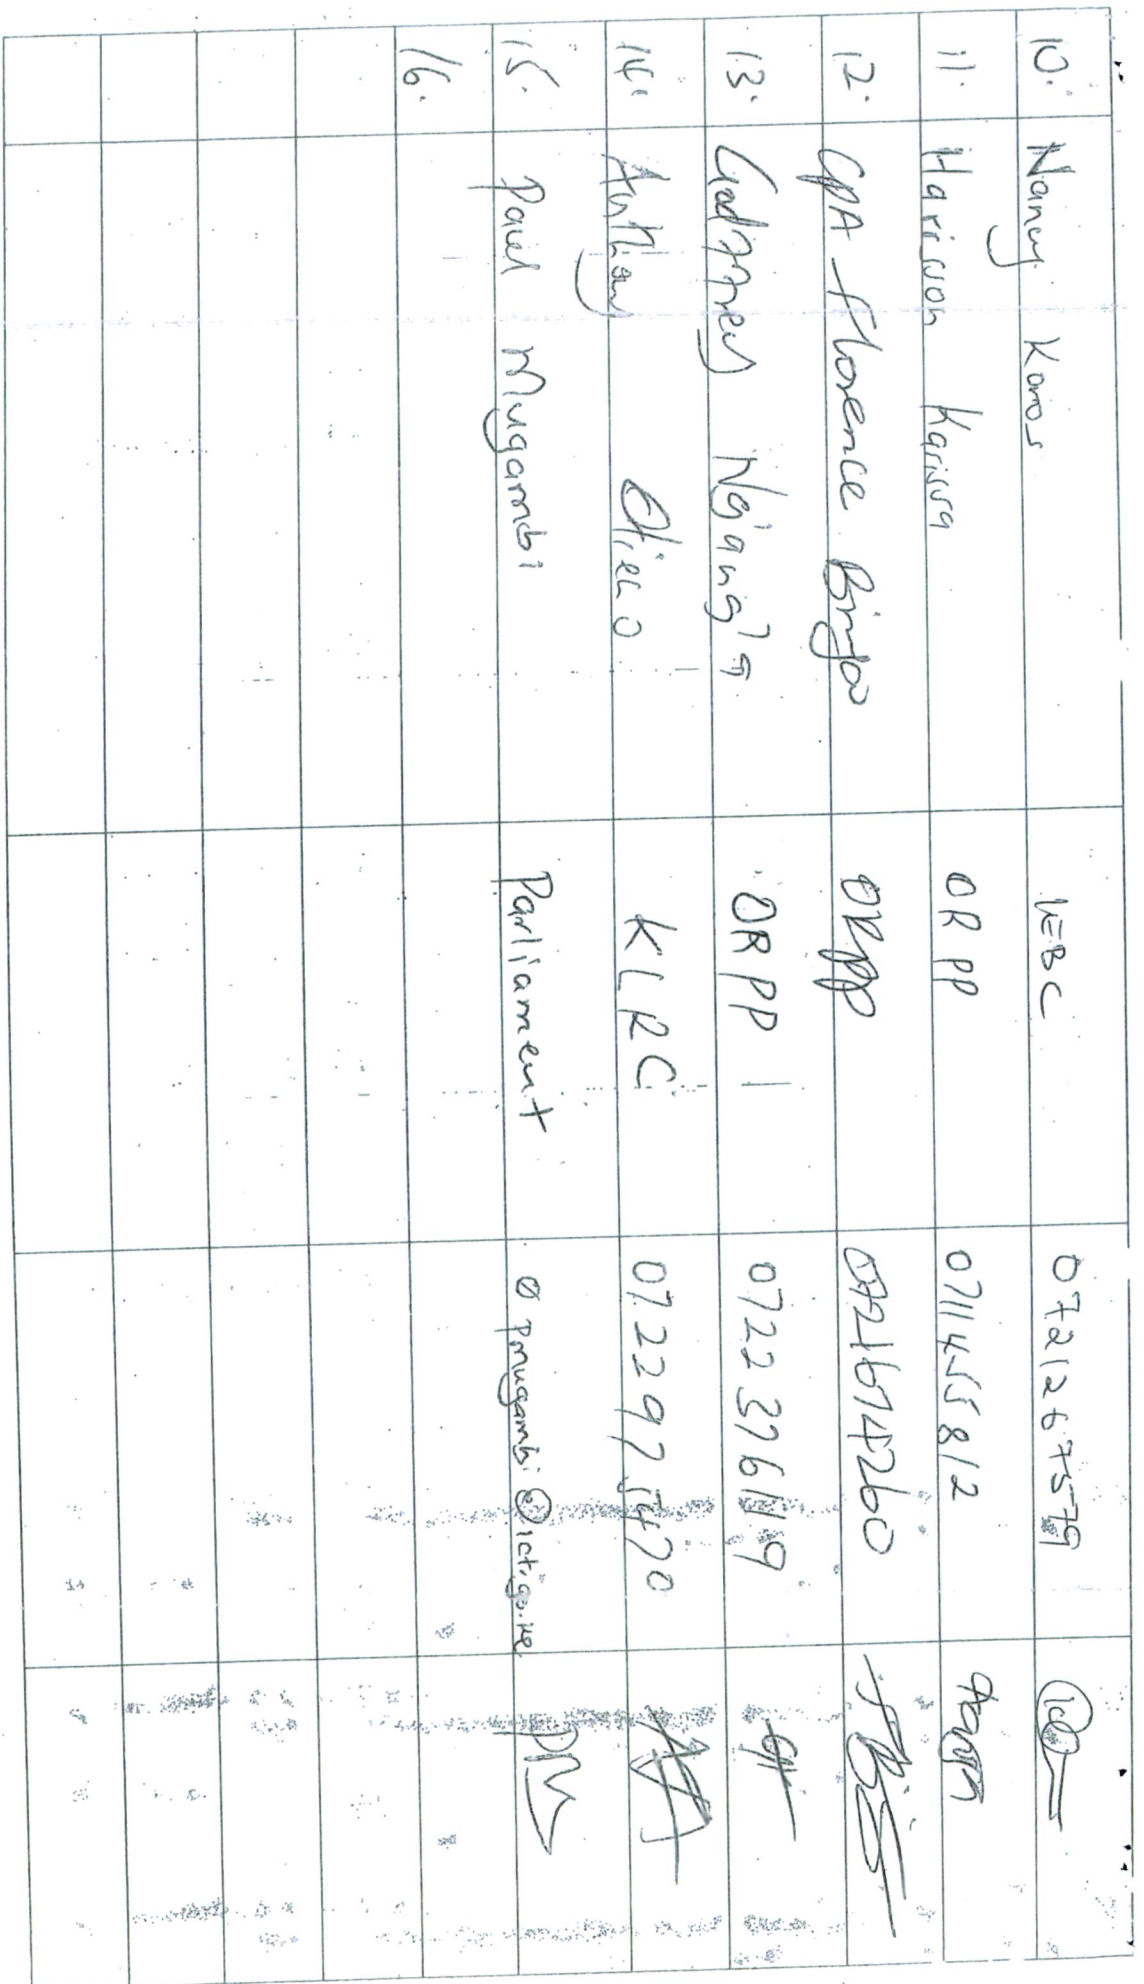 10. Nancy Koros IEBC 0721267579
11. Harisson Karisa ORPP 0711455812
12. CPA Florence Birya ORPP 0721674260
13. Godffrey Ng'ang'a ORPP 0722376119
14. Anthony Otieno KLRC 0722297470
15. Paul Mugambi Parliament pmugambi@ict.go.ke
16.